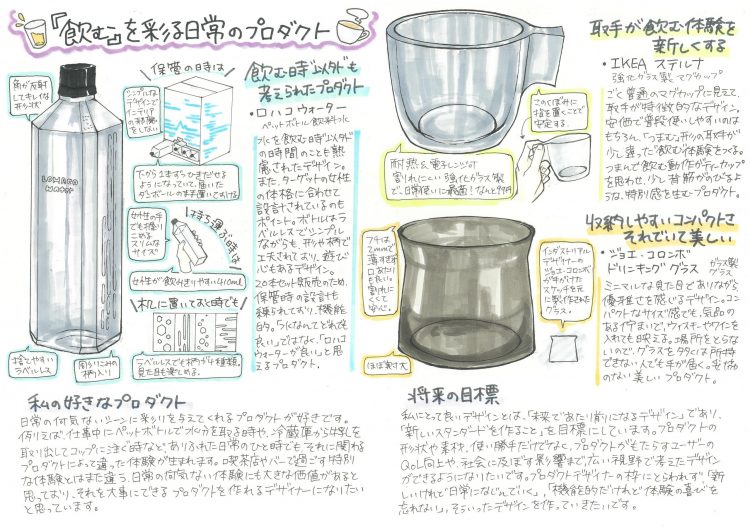 『飲む』を彩る日常のプロダクト
角が反射
してキレイな
形状♪
LOHACO
WATER
捨てやすい
ラベルレス
彫りこみの
柄入り
保管の時は
シンプルな
デザインで
インテリア
の邪魔
をしない
下から1本ずつひきだせる
ようになっていて、届いた
ダンボールのまま置いておける
持ち運ぶ時は
女性の手
でも握り
こめる
スリムな
サイズ
女性が飲みきりやすい410ml
机に置いておく時でも
ラベルレスでも柄が4種類。
見た目も楽しめる。
飲む時以外も
考えられたプロダクト
・ロハコウォーター
ペットボトル飲料水
水を飲む時以外
の時間のことも熟
考されたデザイン。
また、ターゲットの女性
の体格に合わせて
設計されているのも
ポイント。ボトルはラ
ベルレスでシンプル
ながらも、形や柄で
工夫されており、遊び
心もあるデザイン。
20本セット販売のため、
保管時の設計も
練られており、機能
的。「水なんてどれでも
良い」ではなく、「ロハコ
ウォーターが良い」と思
えるプロダクト。
このくぼみに
指を置くことで
安定する
耐熱&電子レンジOK
割れにくい強化ガラス製
で、日常使いに最適!なんと99円
取手が飲む体験を
新しくする
・IKEA ステルナ
強化ガラス製マグカップ
ごく普通のマグカップに見えて、
取手が特徴的なデザイン。
安価で普段使いしやすいのは
もちろん、「つまむ」形の取手が
少し違った「飲む体験」をつくる。
つまんで飲む動作がティーカップ
を思わせ、少し背筋がのびるよ
うな、特別感を生むプロダクト。
フチは
2mmで
薄すぎず
口当たりも
良い。
割れに
くくて
安心。
ほぼ実寸大
インダストリアル
デザイナーの
ジョエ・コロンボ
が手がけた
スケッチを元
に製作された
グラス。
収納しやすいコンパクトさ
それでいて美しい
・ジョエ・コロンボ
ドリンキンググラス
ガラス製
グラス
ミニマルな見た目でありながら、
優雅さを感じるデザイン。コン
パクトなサイズ感でも、気品の
ある佇まいで、ウィスキーやワインを
入れても映える。場所をとらな
いので、グラスを多くは所持
できない人でも手が届く。妥協
のない美しいプロダクト。
私の好きなプロダクト
日常の何気ないシーンに彩りを与えてくれるプロダクトが好きです。
例えば、仕事中にペットボトルで水分を取る時や、冷蔵庫から牛乳を
取り出してコップに注ぐ時など、ありふれた日常のひと時でも、それに関わる
プロダクトによって違った体験が生まれます。喫茶店やバーで過ごす特別
な体験とはまた違う、日常の何気ない体験にも大きな価値があると
思っており、それを大事にできるプロダクトを作れるデザイナーになりたい
と思っています。
将来の目標
私にとって良いデザインとは、「未来であたり前になるデザイン」であり、
「新しいスタンダードを作ること」を目標にしています。プロダクトの
形状や素材、使い勝手だけでなく、プロダクトがもたらすユーザーの
QOL向上や、社会に及ぼす影響まで、広い視野で考えたデザイン
ができるようになりたいです。プロダクトデザイナーの枠にとらわれず、「新
しいけれど日常になじんでいく」、「機能的だけれど体験の喜びを
忘れない」、そういったデザインを作っていきたいです。